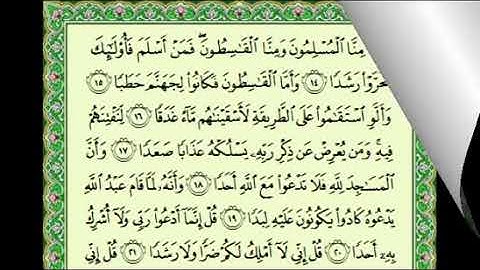 مِنَّا الْمُسْلِمُونَ وَمِنَّا الْقَاسِطُونَ ۖ فَمَنْ أَسْلَمَ فَأُو۟لَٰٓئِكَ
تَحَرَّوْا۟ رَشَدًا ﴿١٤﴾ وَأَمَّا الْقَاسِطُونَ فَكَانُوا۟ لِجَهَنَّمَ حَطَبًا ﴿١٥﴾
وَأَلَّوِ اسْتَقَامُوا۟ عَلَى الطَّرِيقَةِ لَأَسْقَيْنَاهُم مَّآءً غَدَقًا ﴿١٦﴾ لِنَفْتِنَهُمْ
فِيهِ ۚ وَمَن يُعْرِضْ عَن ذِكْرِ رَبِّهِۦ يَسْلُكْهُ عَذَابًا صَعَدًا ﴿١٧﴾ وَأَنَّ
الْمَسَاجِدَ لِلَّهِ فَلَا تَدْعُوا۟ مَعَ اللَّهِ أَحَدًا ﴿١٨﴾ وَأَنَّهُۥ لَمَّا قَامَ عَبْدُ اللَّهِ
يَدْعُوهُ كَادُوا۟ يَكُونُونَ عَلَيْهِ لِبَدًا ﴿١٩﴾ قُلْ إِنَّمَآ أَدْعُوا۟ رَبِّى وَلَآ أُشْرِكُ
بِهِۦٓ أَحَدًا ﴿٢٠﴾ قُلْ إِنِّى لَآ أَمْلِكُ لَكُمْ ضَرًّا وَلَا رَشَدًا ﴿٢١﴾ قُلْ إِنِّى